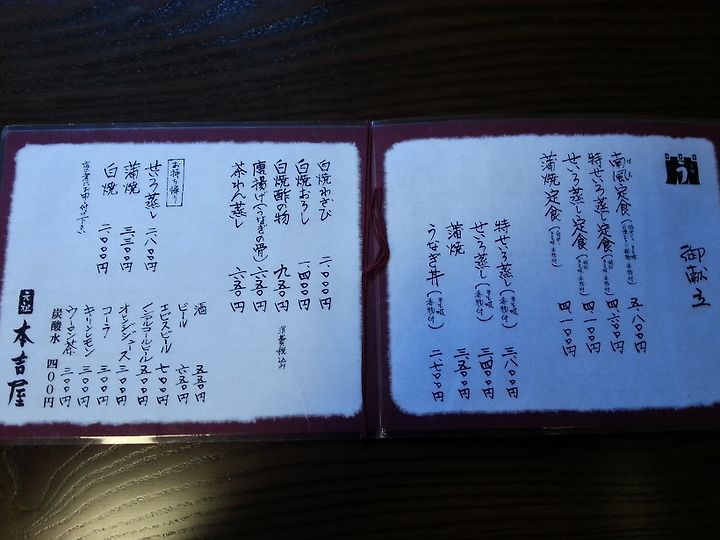 う
御献立
南風定食 五、八〇〇円
特せいろ蒸し定食 四、六〇〇円
せいろ蒸し定食 四、一〇〇円
蒲焼定食 四、一〇〇円
特せいろ蒸し(きも吸 香物付) 三、八〇〇円
せいろ蒸し(きも吸 香物付) 三、四〇〇円
蒲焼 三、五〇〇円
うなぎ丼(きも吸 香物付) 二、七〇〇円
白焼わさび 二、〇〇〇円
白焼おろし 一、四〇〇円
白焼酢の物 九五〇円
唐揚げ(うなぎの骨) 六五〇円
茶わん蒸し 六五〇円
消費税込
お持ち帰り
せいろ蒸し 二、八〇〇円
蒲焼 三、三〇〇円
白焼 二、〇〇〇円
酒 五五〇円
ビール 六五〇円
エビスビール 七〇〇円
ノンアルコールビール 五〇〇円
オレンジジュース 三〇〇円
コーラ 三〇〇円
キリンレモン 三〇〇円
ウーロン茶 三〇〇円
炭酸水 四〇〇円
元祖
本吉屋